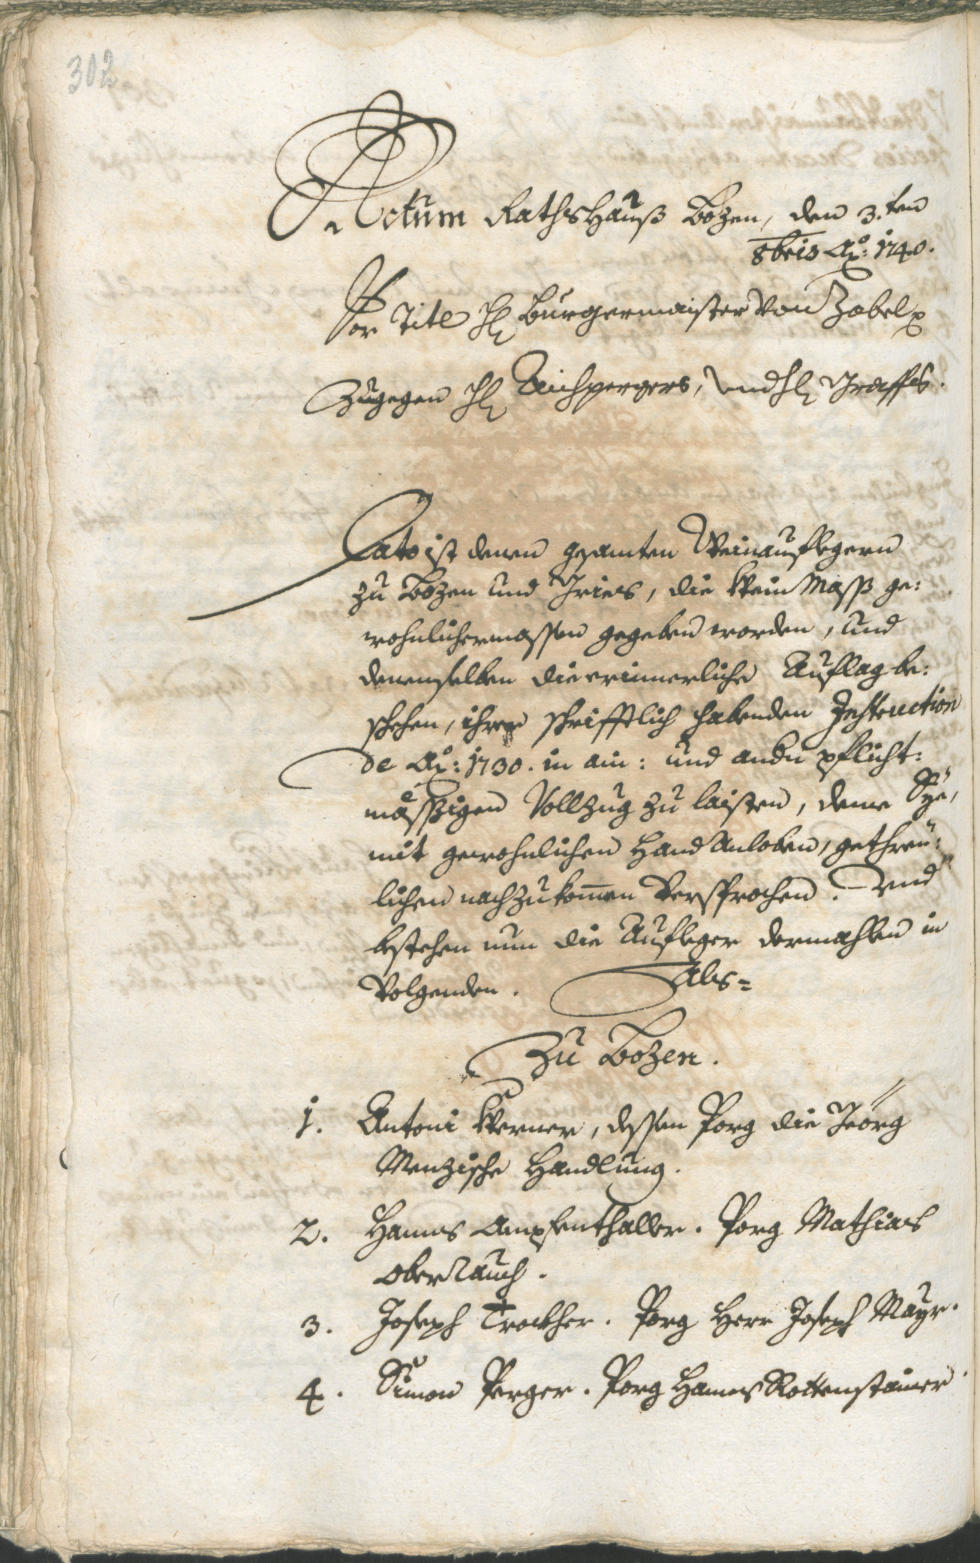 302
Actum Rathshauß Bozen, den 3.ten
8bris Aõ: 1740.
Vor Titl H Burgermaister von Zobel
Zugegen H Aichpergers, und H Graffs.
Dato ist denen gesamten Weinauflegern
zu Bozen und Gries, die Wein Mass ge:
wohnlichermassen gegeben worden, und
denenselben die erinnerliche Auflag be:
schehen, ihrer schrifftlich habenden Instruction
de Aõ: 1730. in ain: und andern pflicht:
mässigen Vollzug zu laisten, deme Sye,
mit gewohnlichen Hand Anloben, gethreu:
lichen nachzukomen versprochen. Und
bestehen nun die Aufleger dermahlen in
Volgenden. Als=
Zu Bozen.
1. Antoni Werner, dessen Porg die Jeörg
Menzische Handlung.
2. Hanns Ampfenthaller. Porg Mathias
Oberrauch.
3. Joseph Trockher. Porg Herr Joseph Mayr.
4. Simon Perger. Porg Hanns Rottenstainer